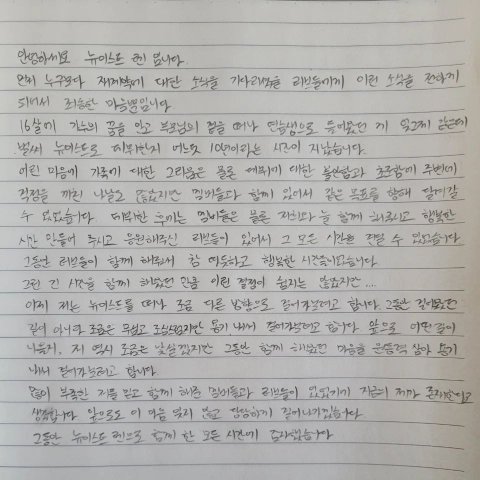 안녕하세요 뉴이스트 렌 입니다.
먼저 누구보다 재계약에 대한 소식을 기다려왔을 러브들에게 이런 소식을 전하게
되어서 죄송한 마음뿐입니다
16살에 가수의 꿈을 안고 부모님의 집을 떠나 연습생으로 들어왔던 게 엊그제 같은데
벌써 뉴이스트로 데뷔한지 어느덧 10년이라는 시간이 지났습니다.
어린 마음에 가족에 대한 그리움은 물론 데뷔에 대한 불안함과 초조함에 주변에
걱정을 끼친 나날도 많았지만 멤버들과 함께 있어서 같은 목표를 향해 달려갈
수 있었습니다 데뷔한 후에는 멤버들은 물론 저희와 늘 함께 해주시고 행복한
시간 만들어 주시고 응원해주신 러브들이 있어서 그 모든 시간을 견딜 수 있었습니다
그동안 러브들이 함께 해줘서 참 따듯하고 행복한 시간들이었습니다
그런 긴 시간을 함께 해왔던 만큼 이런 결정이 쉽지는 않았지만...
이제 저는 뉴이스트를 떠나 조금 다른 방향으로 걸어가보려고 합니다 그동안 걸어왔던
길이 아니라 조금은 무섭고 조심스럽지만 용기 내어서 걸어가보려고 합니다 앞으로 어떤 길이
나올지, 저 역시 조금은 낯설겠지만 그동안 함께 해왔던 마음을 원동력 삼아 용기
내서 걸어가보려고 합니다.
많이 부족한 저를 믿고 함께 해준 멤버들과 러브들이 있었기에 지금의 제가 존재한다고
생각합니다 앞으로도 이 마음 잊지 않고 당당하게 걸어나가겠습니다
그동안 뉴이스트 렌으로 함께 한 모든 시간에 감사했습니다